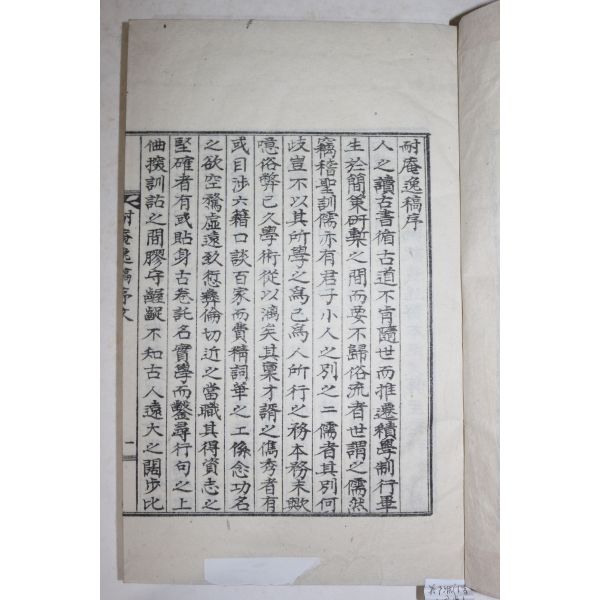 耐庵逸稿序
人之讀古書循古道不肯隨世而推遷積學制行畢
生於簡策硏槧之間而要不歸俗流者世謂之儒然
竊稽聖訓儒亦有君子小人之別之二儒者其別何
歧豈不以其所學之爲己爲人所行之務本務末歟
噫俗弊已久學術從以漓矣其稟才諝之儁秀者有
或目涉六籍口談百家而費精詞華之工係念功名
之欲空騖虛遠致愆彝倫切近之當職其得資志之
堅確者有或貼身古卷託名實學而鑿尋行句之上
佃摭訓詁之間膠守齷齪不知古人遠大之闊步比
耐庵逸稿序文 一